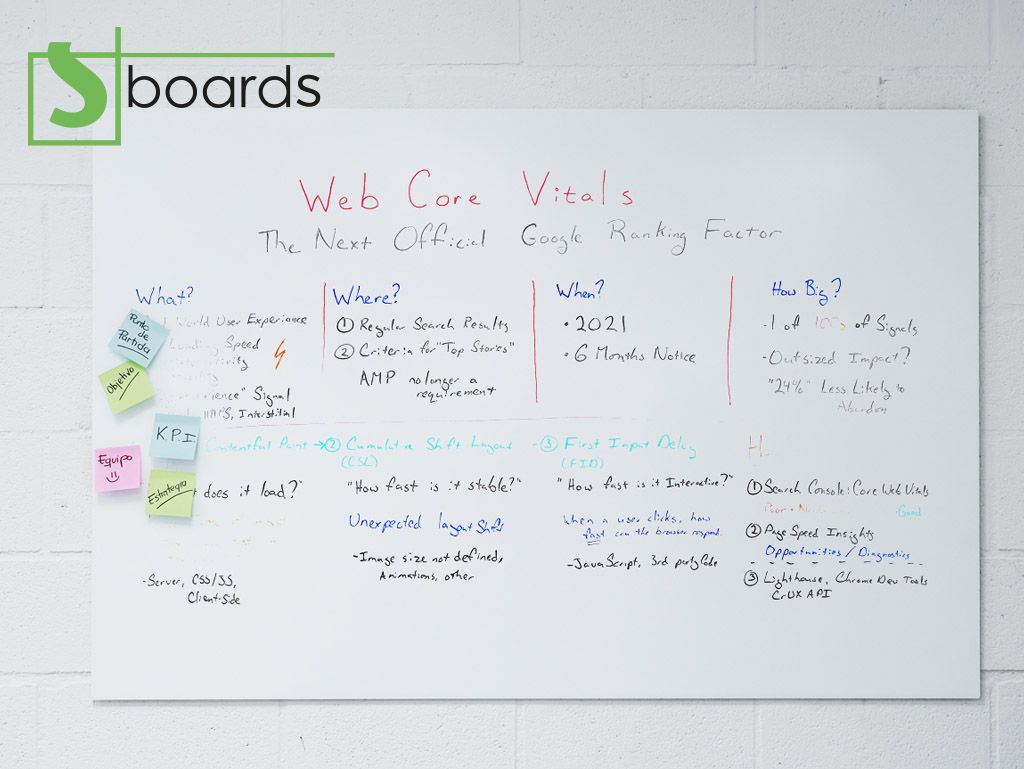 S boards
Web Core Vitals
The Next Official Google Ranking Factor
What?
World User Experience
Loading Speed
Signal
Interstitial
Punto
de
Partida
Objetivo
KPI
Equipo
Estrategia
Where?
① Regular Search Results
② Criteria for "Top Stories"
AMP no longer a
requirement
When?
• 2021
• 6 Months Notice
How Big?
- 1 of 100s of Signals
- Outsized Impact?
"24%" Less Likely to
Abandon
Contentful Paint →
does it load?"
- Server, CSS/JS,
Client-Side
② Cumulative Shift Layout
(CSL)
"How fast is it stable?"
Unexpected layout Shift
- Image size not defined,
Animations, other
- ③ First Input Delay
(FID)
"How fast is it Interactive?"
When a user clicks, how
fast can the browser respond.
- JavaScript, 3rd party Code
① Search Console: Core Web Vitals
Poor • • Good
② Page Speed Insights
Opportunities / Diagnostics
③ Lighthouse, Chrome Dev Tools
CrUX API